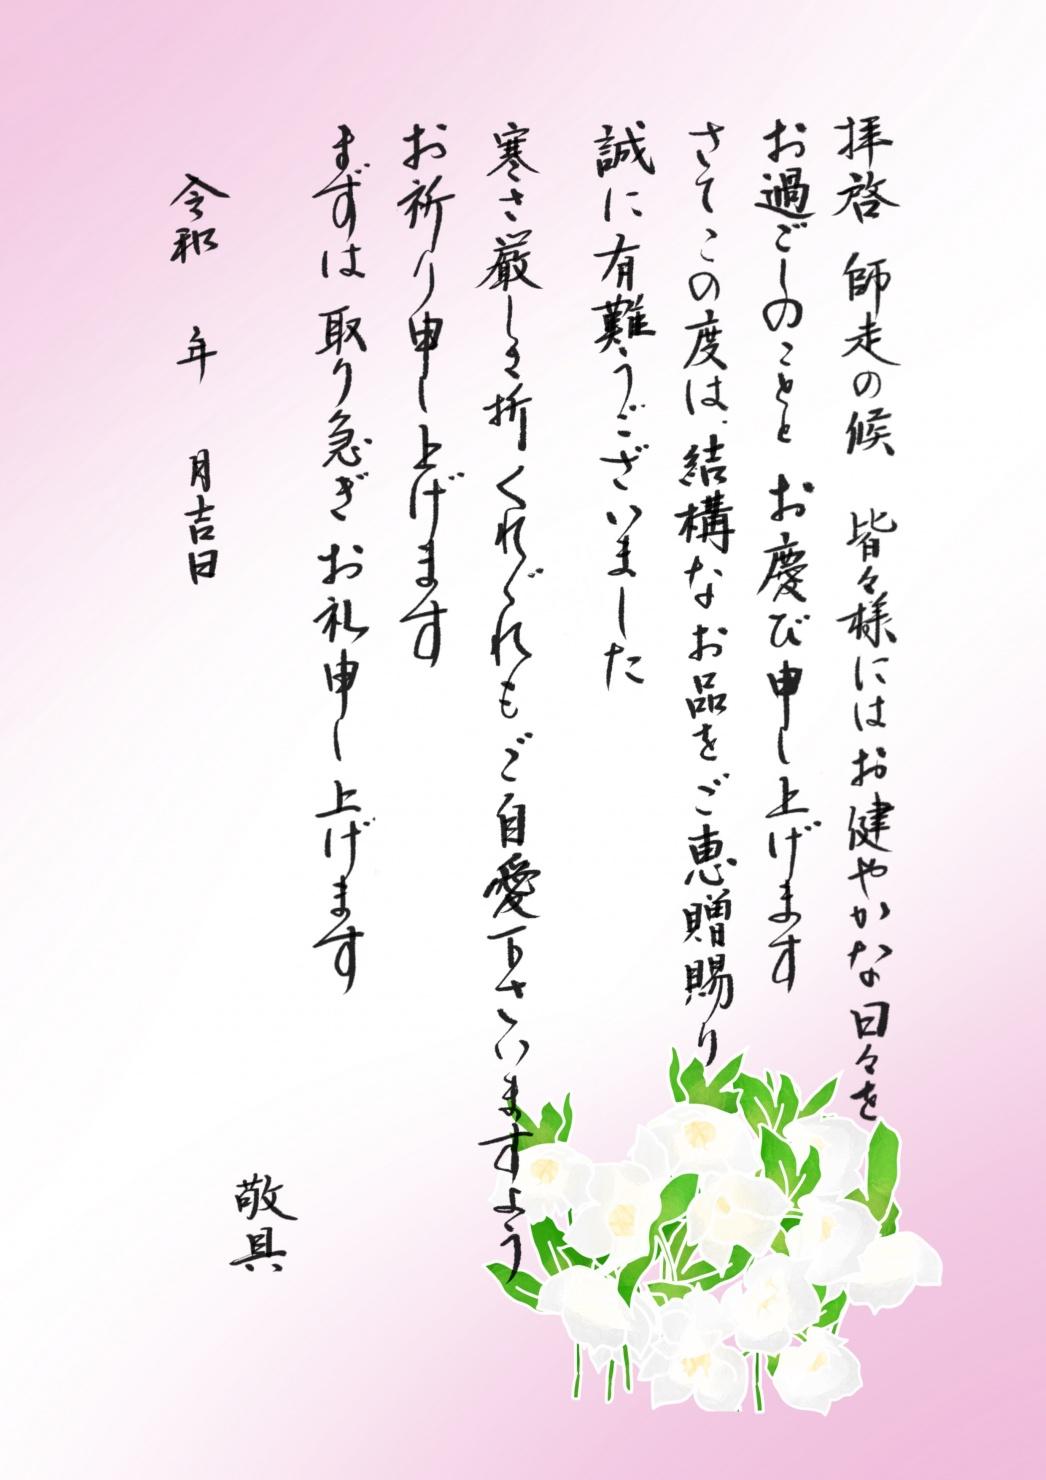 拝啓 師走の候 皆々様にはお健やかな日々を
お過ごしのことと お慶び申し上げます
さてこの度は、結構なお品をご恵贈賜り
誠に有難うございました
寒さ厳しき折 くれぐれもご自愛下さいますよう
お祈り申し上げます
まずは 取り急ぎお礼申し上げます
敬具
令和 年 月吉日